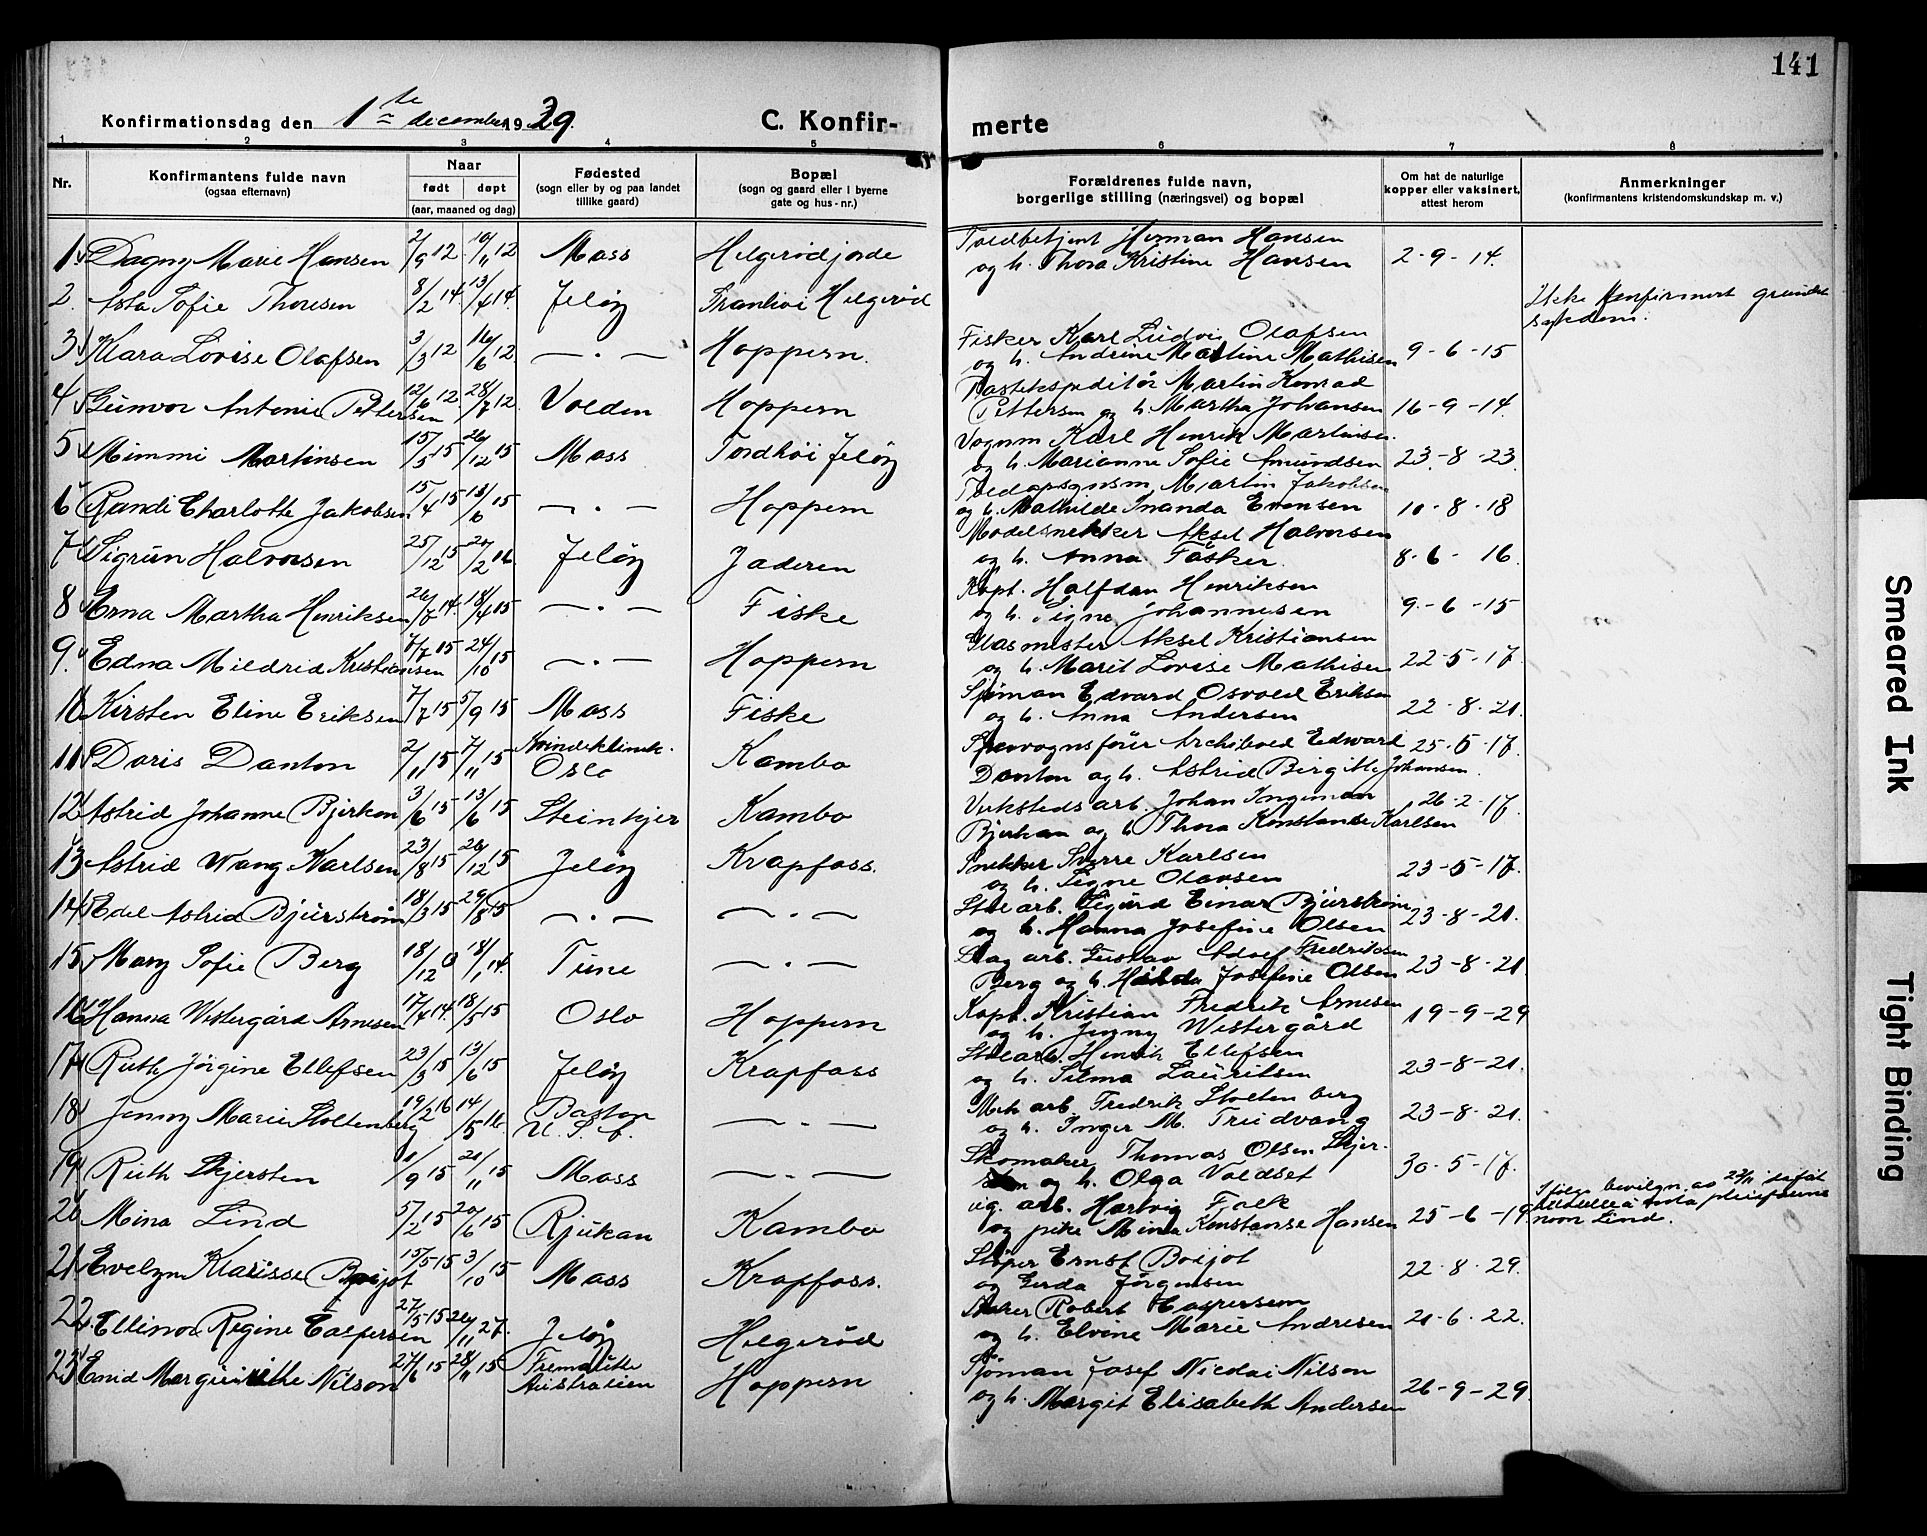 141
Konfirmationsdag den 1te december 1929.
C. Konfirmerte
1 2 3 4 5 6 7 8
Nr.
Konfirmantens fulde navn
(ogsaa efternavn)
Naar
født døpt
(aar, maaned og dag)
Fødested
(sogn eller by og paa landet
tillike gaard)
Bopæl
(sogn og gaard eller i byerne
gate og hus-nr.)
Forældrenes fulde navn,
borgerlige stilling (næringsvei) og bopæl
Om hat de naturlige
kopper eller vaksinert,
attest herom
Anmerkninger
(konfirmantens kristendomskundskap m. v.)
1 Dagny Marie Hansen 2/9 12 10/11 12 Moss Helgerødjorde Toldbetjent Herman Hansen
og h. Thora Kristine Hansen 2-9-14.
2. Asta Sofie Thoresen 8/2 14. 13/4 14. Jeløy Helgerød Ikke konfirmert grundet
sykdom.
3 Klara Lovise Olafsen 3/3 12 16/6 12 — . — Hoppern. Fisker Karl Ludvig Olafsen
og h. Andrine Martine Mathisen 9-6-15
4 Gunvor Antonie Pettersen 12/6 12. 28/7 12. Volden Hoppern Martin Konrad
Pettersen og h. Martha Johansen 16-9-14.
5 Mimmi Martinsen 15/5 15 26/12 15 Moss Tordhøi Jeløy Vognm Karl Henrik Martinsen.
og h. Marianne Sofie Amundsen 23-8-23
6 Randi Charlotte Jakobsen 15/4 15 13/6 15 — . — Hoppern Martin Jakobsen
og h. Mathilde Inanda Evensen 10-8-18
7 Sigrun Halvorsen 25/12 15 20/2 16. Jeløy Jaderen Modelsnekker Aksel Halvorsen
og h. Anna Fasker. 8-6-16
8 Erna Martha Henriksen 26/7 14. 18/4 15 — . — Fiske Kapt. Halfdan Henriksen
og h. Signe Johannesen 9-6-15
9. Edna Mildrid Kristiansen 7/7 15 24/10 15 — . — Hoppern Glasmester Aksel Kristiansen
og h. Marit Lovise Mathisen 22-5-17
10 Kirsten Eline Eriksen 7/7 15 5/9 15 Moss Fiske Sjøman Edvard Osvald Eriksen
og h. Anna Andersen 22-8-21.
11 Doris Danton 2/11 15 7/11 15 Kvindeklinik.
Oslo Kambo Sporvognsfører Archibald Edward
Danton og h. Astrid Birgitte Johansen. 25-5-17.
12 Astrid Johanne Bjerkan 3/6 15 13/6 15 Steinkjer Kambo Verkstedsarb. Johan Ingeman
Bjerkan og h. Thora Konstanse Karlsen 26-2-17.
13 Astrid Wang Karlsen 23/8 15 26/12 15 Jeløy Krapfoss. Snekker Sverre Karlsen
og h. Signe Olavsen 23-5-17.
14 Edel Astrid Bjurstrøm 18/3 15 29/8 15 — . — — . — Stålarb. Sigurd Einar Bjurstrøm
og h. Hanna Josefine Olsen 23-8-21.
15 Mary Sofie Berg 18/12 13 18/1 14. Tune — . — arb. Gustav Adolf Fredriksen
Berg og h. Hilda Josefine Olsen 23-8-21
16 Hanna Westergård Arnesen 17/4 14. 18/5 15 Oslo Hoppern Kapt. Kristian Fredrik Arnesen
og h. Jenny Westergård 19-9-29
17 Ruth Jørgine Ellefsen 23/3 15 13/6 15 Jeløy Krapfoss Stålarb. Henrik Ellefsen
og h. Selma Lauritsen 23-8-21.
18 Jenny Marie Stoltenberg 19/2 16 14/5 16. Boston
U. S. A. — . — Mek arb. Fredrik Stoltenberg
og h. Inger M. Tridvang 23-8-21.
19 Ruth Skjersten 1/9 15 21/11 15 Moss — . — Skomaker Thomas Olsen Skjer-
sten og h. Olga Voldset 30-5-17.
20 Mina Lind 5/2 15 20/6 15 Rjukan Kambo ug. arb. Hartvig Falk
og pike Mina Konstanse Hansen 25-6-19 Ifølge bevilgn. av
navn Lind.
21. Evelyn Klarisse Boijot 15/5 15 3/10 15 Moss Krapfoss. Støper Ernst Boijot
og Gerda Jørgensen 22-8-29.
22. Ellinor Regine Caspersen 27/5 15 20/11 27. Jeløy Helgerød Robert Caspersen
og h. Elvine Marie Andresen 21-6-22.
23 Enid Margueirithe Nilson 27/6 15 28/11 15 Fremantle
Australien Hoppern Sjøman Josef Nicolai Nilson
og h. Margit Elisabeth Andersen 26-9-29.
Smeared Ink
Tight Binding